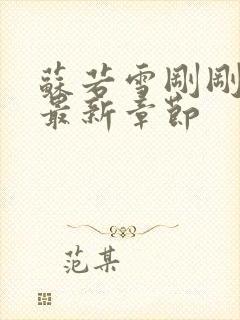 蘇若雪剛剛
最新章節
范某